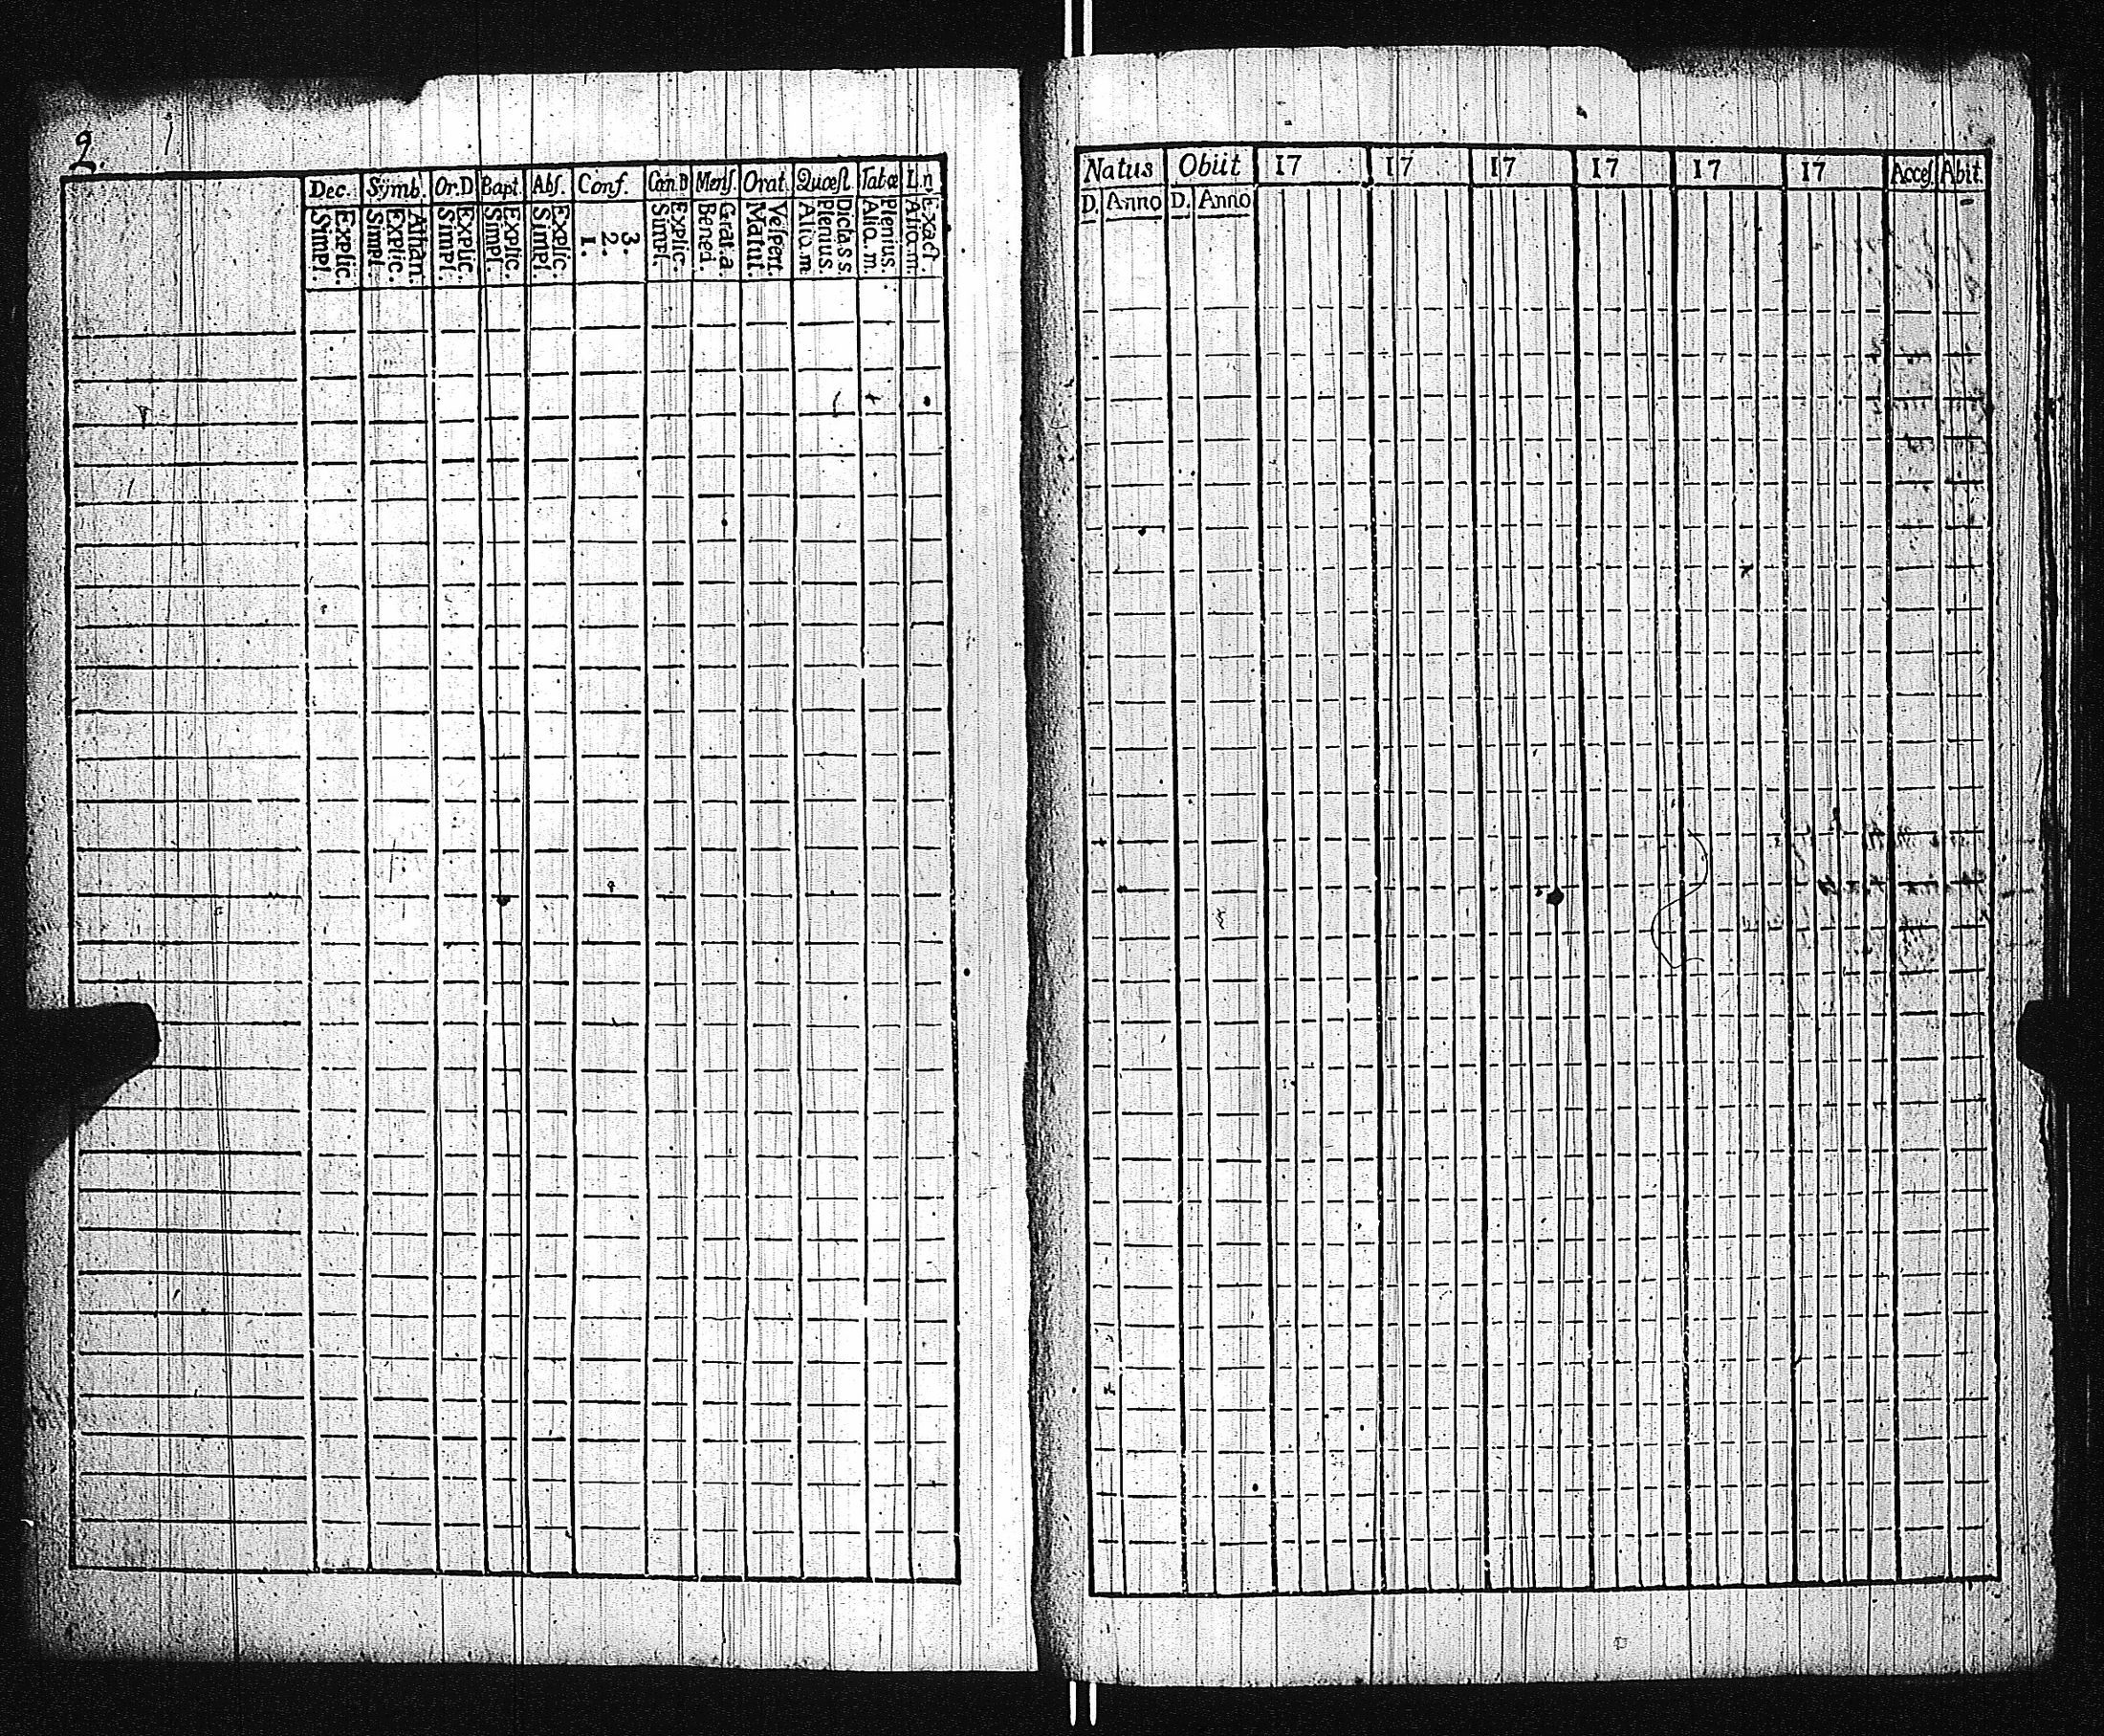 2.
Dec. Symb. Or.D Bapt. Abſ. Conf. Cœn.D Menſ. Orat. Quæſt. Tabæ L.n
Explic. Simpl. Athan. Explic. Simpl. Explic. Simpl. Explic. Simpl. Explic. Simpl. 3. 2. 1. Explic. Simpl. Grat.a. Bened. Veſpert. Matut. Dicta.s.s. Plenius. Alio.m. Plenius. Alio.m. Exact. Alio.m.
Natus Obiit 17 17 17 17 17 17 Acceſ. Abit.
D. Anno D. Anno